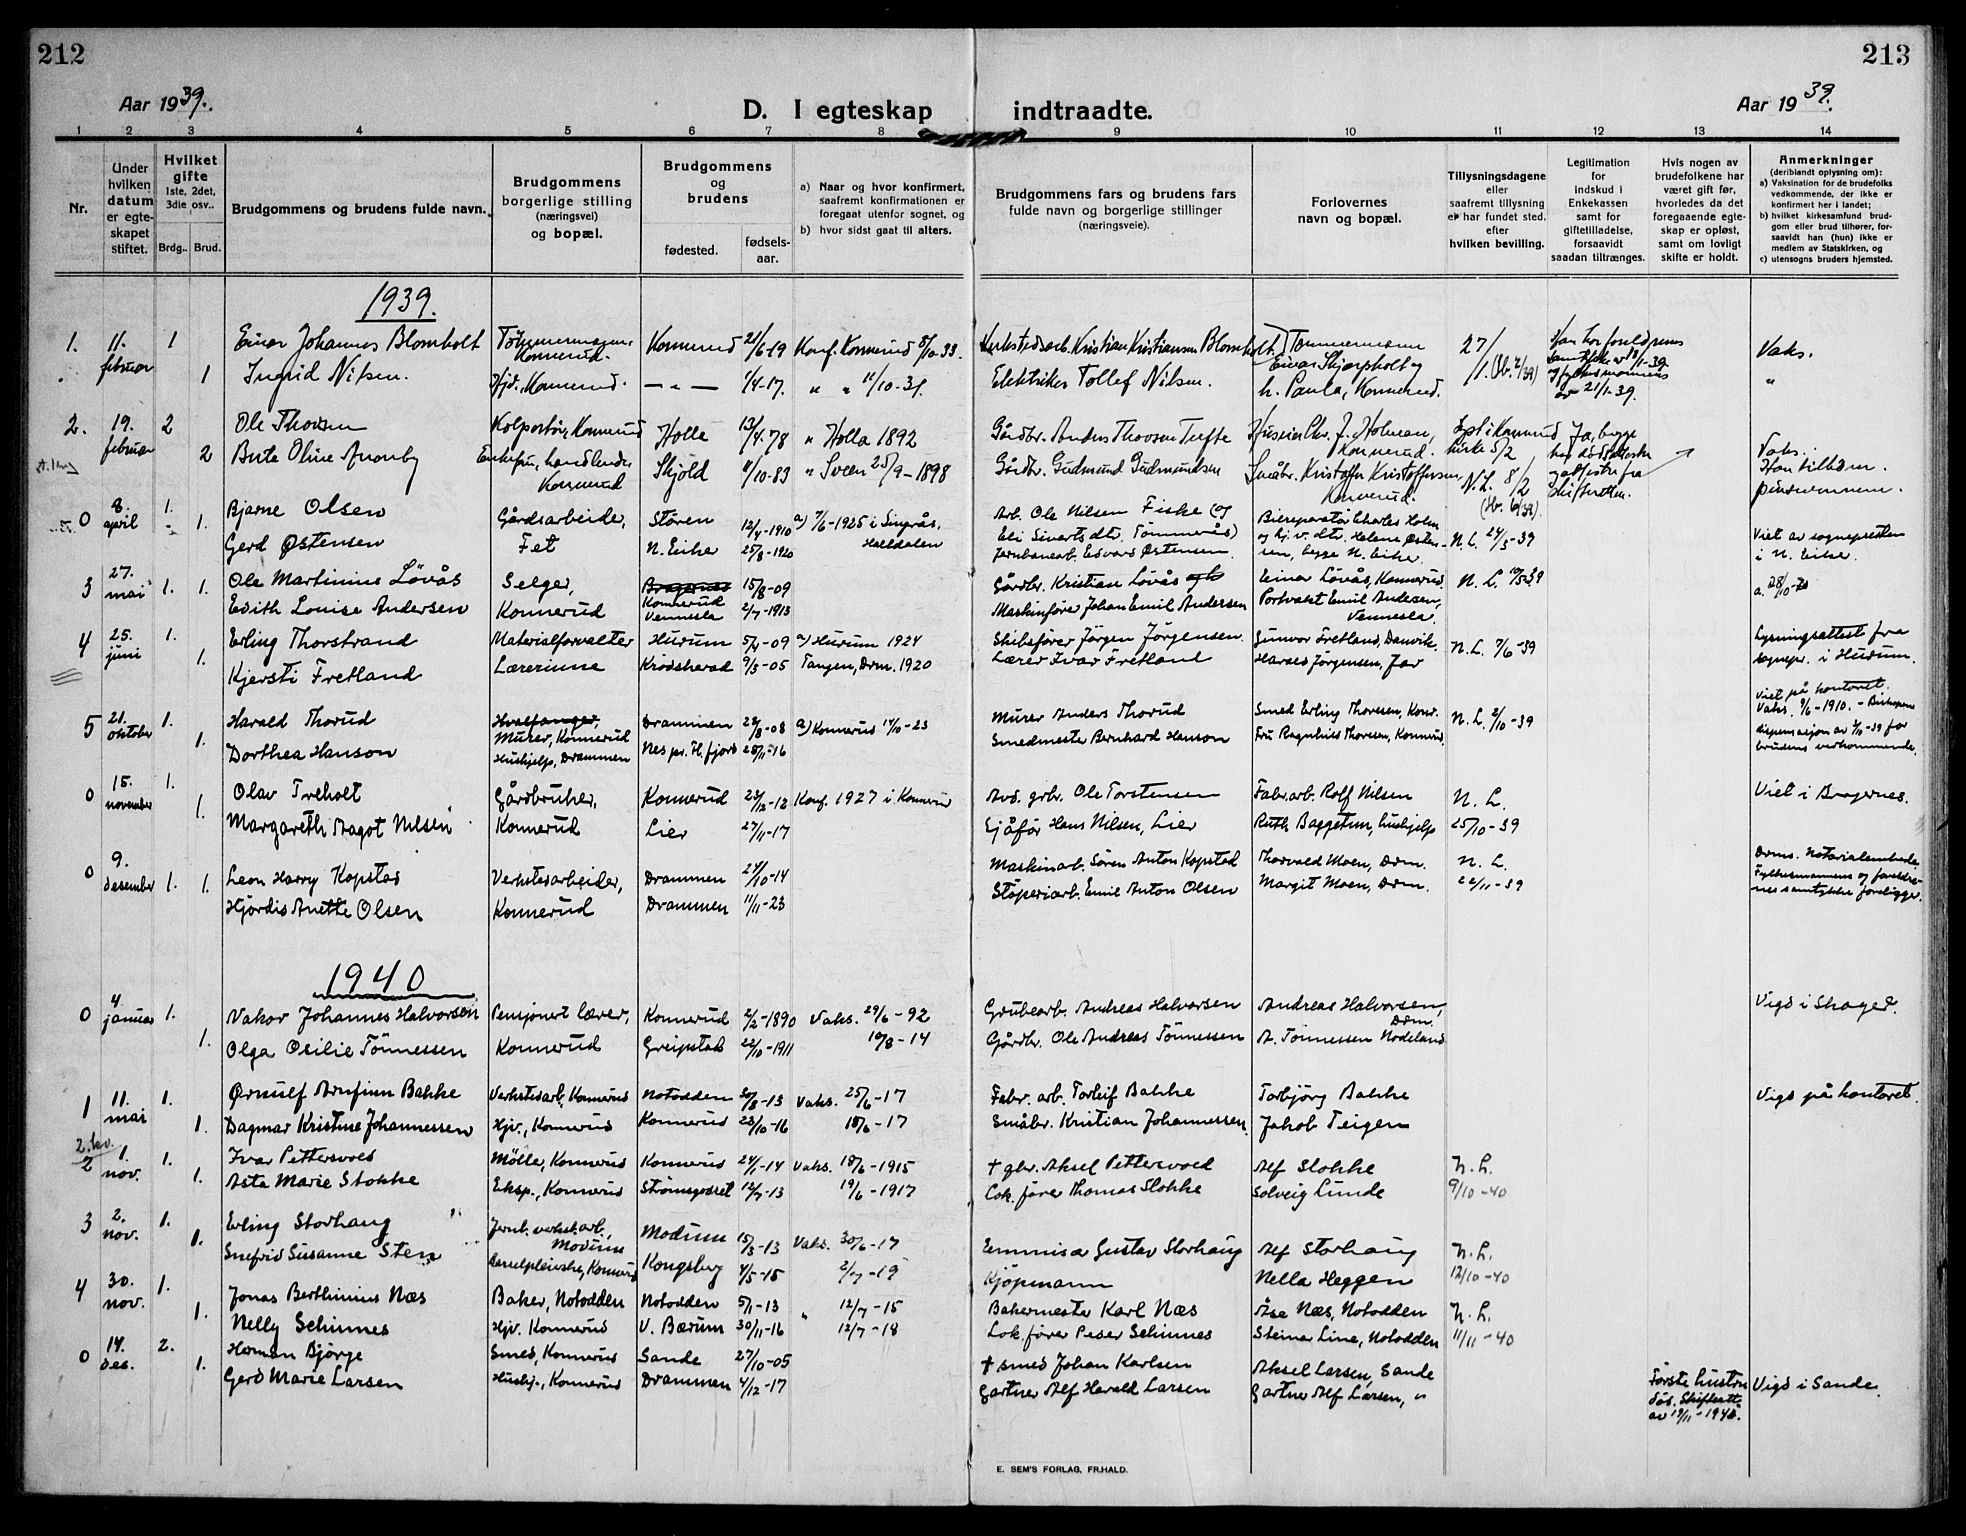 212
213
Aar 1939.
D. I egteskap indtraadte.
Aar 1939.
1 2 3 4 5 6 7 8 9 10 11 12 13 14
Nr.
Under hvilken datum er egteskapet stiftet.
Hvilket gifte
1ste, 2det, 3die osv..
Brdg..
Brud.
Brudgommens og brudens fulde navn.
Brudgommens borgerlige stilling (næringsvei) og bopæl.
Brudgommens og brudens
fødested.
fødselsaar.
a) Naar og hvor konfirmert, saafremt konfirmationen er foregaat utenfor sognet, og
b) hvor sidst gaat til alters.
Brudgommens fars og brudens fars fulde navn og borgerlige stillinger (næringsveie).
Forlovernes navn og bopæl.
Tillysningsdagene eller saafremt tillysning ei har fundet sted, efter hvilken bevilling.
Legitimation for indskud i Enkekassen samt for giftetilladelse, forsaavidt saadan tiltrænges.
Hvis nogen av brudefolkene har været gift før, hvorledes da det foregaaende egteskap er opløst, samt om lovligt skifte er holdt.
Anmerkninger (deriblandt oplysning om):
a) Vaksination for de brudefolks vedkommende, der ikke er konfirmert her i landet;
b) hvilket kirkesamfund brudgom eller brud tilhører, forsaavidt han (hun) ikke er medlem av Statskirken, og
c) utensogns bruders hjemsted.
1939.
1. 11. februar 1 Einar Johannes Blomholt Konnerud 21/6-19 Konf. Konnerud 8/10-33. Verkstedsarb. Kristian Kristiansen Blomholt. Tømmermann 27/1. Vaks.
1 Ingrid Nilsen. Hjv., Konnerud. — „ — 1/4-17. „ „ 11/10-31. Elektriker Tollef Nilsen. h. Paula, Konnerud. „
2. 19. februar 2 Ole Thovsen Kolportør, Konnerud Holla 13/4.78 „ Holla 1892 Gårdbr. Anders Thovsen Tufte Konnerud. Ja, begge
2 Berte Oline Aronby Enkefru, handlende Konnerud Skjold 11/10-83 „ Sveen 25/9-1898 Gårdbr. Gudmund Gudmundsen Småbr. Kristoffer Kristoffersen, Konnerud. N.L. 8/2 Vaks.
0 8. april 1. Bjarne Olsen Gårdsarbeider, Støren 12/4-1910 a) 7/6-1925 i Singsås, Arb. Ole Nilsen Fiske (og Eli Sivertsdtr. Tømmerås)
1. Gerd Østensen Fet N. Eiker 25/8-1920 Jernbanearb. Edvard Østensen. begge N. Eiker. N.L. 24/3-39 Viet av sognepresten i N. Eiker.
3 27. mai 1. 1. Ole Martinius Løvås Selger, Konnerud 15/8-09 Gårdbr. Kristian Løvås Einar Løvås, Konnerud N.L. a. 28/10-20
Edith Louise Andersen Konnerud Vennesla 2/7-1913 Maskinfører Johan Emil Andersen Portvakt Emil Andersen, Vennesla.
4 25. juni 1. Erling Thorstrand Materialforvalter Hurum 5/4-09 a) Hurum 1924 Skibsfører Jørgen Jørgensen. Gunvor Fretland, Danvik. N.L. 7/6-39 Lysningsattest fra sognepr. i Hurum.
1. Kjersti Fretland Lærerinne Krødsherad 9/3-05 Tangen, Drm. 1920 Lærer Ivar Fretland Harald Jørgensen, Jar
5 21. oktober 1. Harald Thorud Hvalfanger, Murer, Konnerud Drammen 28/8-08 a) Konnerud 14/10-23 Murer Anders Thorud Smed Erling Thoresen, Konr. N.L. 2/10-39 Viet på kontoret. Vaks. 9/6-1910. – Biskopens dispensasjon av 7/10-39 for brudens vedkommende.
1. Dorthea Hanson Hushjelp, Drammen Nes pr. H. fjord 28/11-16 Smedmester Bernhard Hanson Fru Ragnhild Thoresen, Konnerud.
0 15. november 1. Olav Treholt Gårdbruker, Konnerud 23/12-12 Konf. 1927 i Konnerud Avd. grbr. Ole Torstensen Fabr.arb. Rolf Nilsen N.L. Viet i Bragernes.
1. Margareth Aagot Nilsen Konnerud Lier 27/11-17 Sjåfør Hans Nilsen, Lier Ruth Baggetun, hushjelp 25/10-39
0 9. desember 1. 1. Leon Harry Kopstad Verkstedarbeider, Drammen 24/10-14 Maskinarb. Søren Anton Kopstad Thorvald Moen, Drm. N.L. Drms. Notarialembede
Hjørdis Anette Olsen Konnerud Drammen 11/11-23 Støperiarb. Emil Anton Olsen Margit Moen, Drm. 22/11-39 Fylkesmannens og foreldrenes samtykke foreligger.
1940
0 4. januar 1. Nakor Johannes Halvorsen Pensjonert lærer, Konnerud 2/2-1890 Vaks. 29/6-92 Grubearb. Andreas Halvorsen Andreas Halvorsen, Drm. Vigd i Skoger.
1. Olga Otilie Tønnessen Konnerud Greipstad 22/10-1911 10/8-14 Gårdbr. Ole Andreas Tønnessen A. Tønnessen Nodeland
1 11. mai 1. Ørnulf Arnfinn Bakke Verkstedarb, Konnerud Notodden 20/8-13 Vaks. 25/6-17 Fabr. arb. Torleif Bakke Torbjörg Bakke Vigd på kontoret.
1. Dagmar Kristine Johannessen Hjv., Konnerud Konnerud 23/10-16 18/6-17 Småbr. Kristian Johannessen. Jakob Teigen
2 1. nov. 1. Ivar Pettersvold Møller, Konnerud Konnerud 24/1-14 Vaks. 18/6-1915 † gbr. Aksel Pettersvold Alf Stokke N.L.
1. Asta Marie Stokke Eksp., Konnerud Strømsgodset 12/7-13 19/6-1917 Lok. fører Thomas Stokke Solveig Lunde 9/10-40
3 2. nov. 1. Erling Storhaug Jernb. verkst.arb., Modum Modum 15/3-13 Vaks. 30/6-17 Gustav Storhaug Alf Storhaug N.L.
1. Snefrid Susanne Sten Konnerud Kongsberg 4/5-15 2/7-19 Kjøpmann Nella Heggen 12/10-40
4 30. nov. 1. Jonas Berthinius Næs Baker, Notodden Notodden 5/1-13 „ 12/7-15 Bakermester Karl Næs Åse Næs, Notodden N.L.
1. Nelly Schinnes Hjv. Konnerud V. Bærum 30/11-16 12/7-18 Lok. fører Peder Schinnes Steinar Line, Notodden 11/11-40
0 14. des. 2. Herman Bjørge Smed, Konnerud Sande 27/10-05 † smed Johan Karlsen Aksel Larsen, Sande Første hustru død. Skifteatt. av 19/11-1940. Vigd i Sande.
1. Gerd Marie Larsen Hushj., Konnerud Drammen 4/12-17 Gartner Alf Harald Larsen Gartner Alf Larsen, „
E. SEM'S FORLAG, FR.HALD.